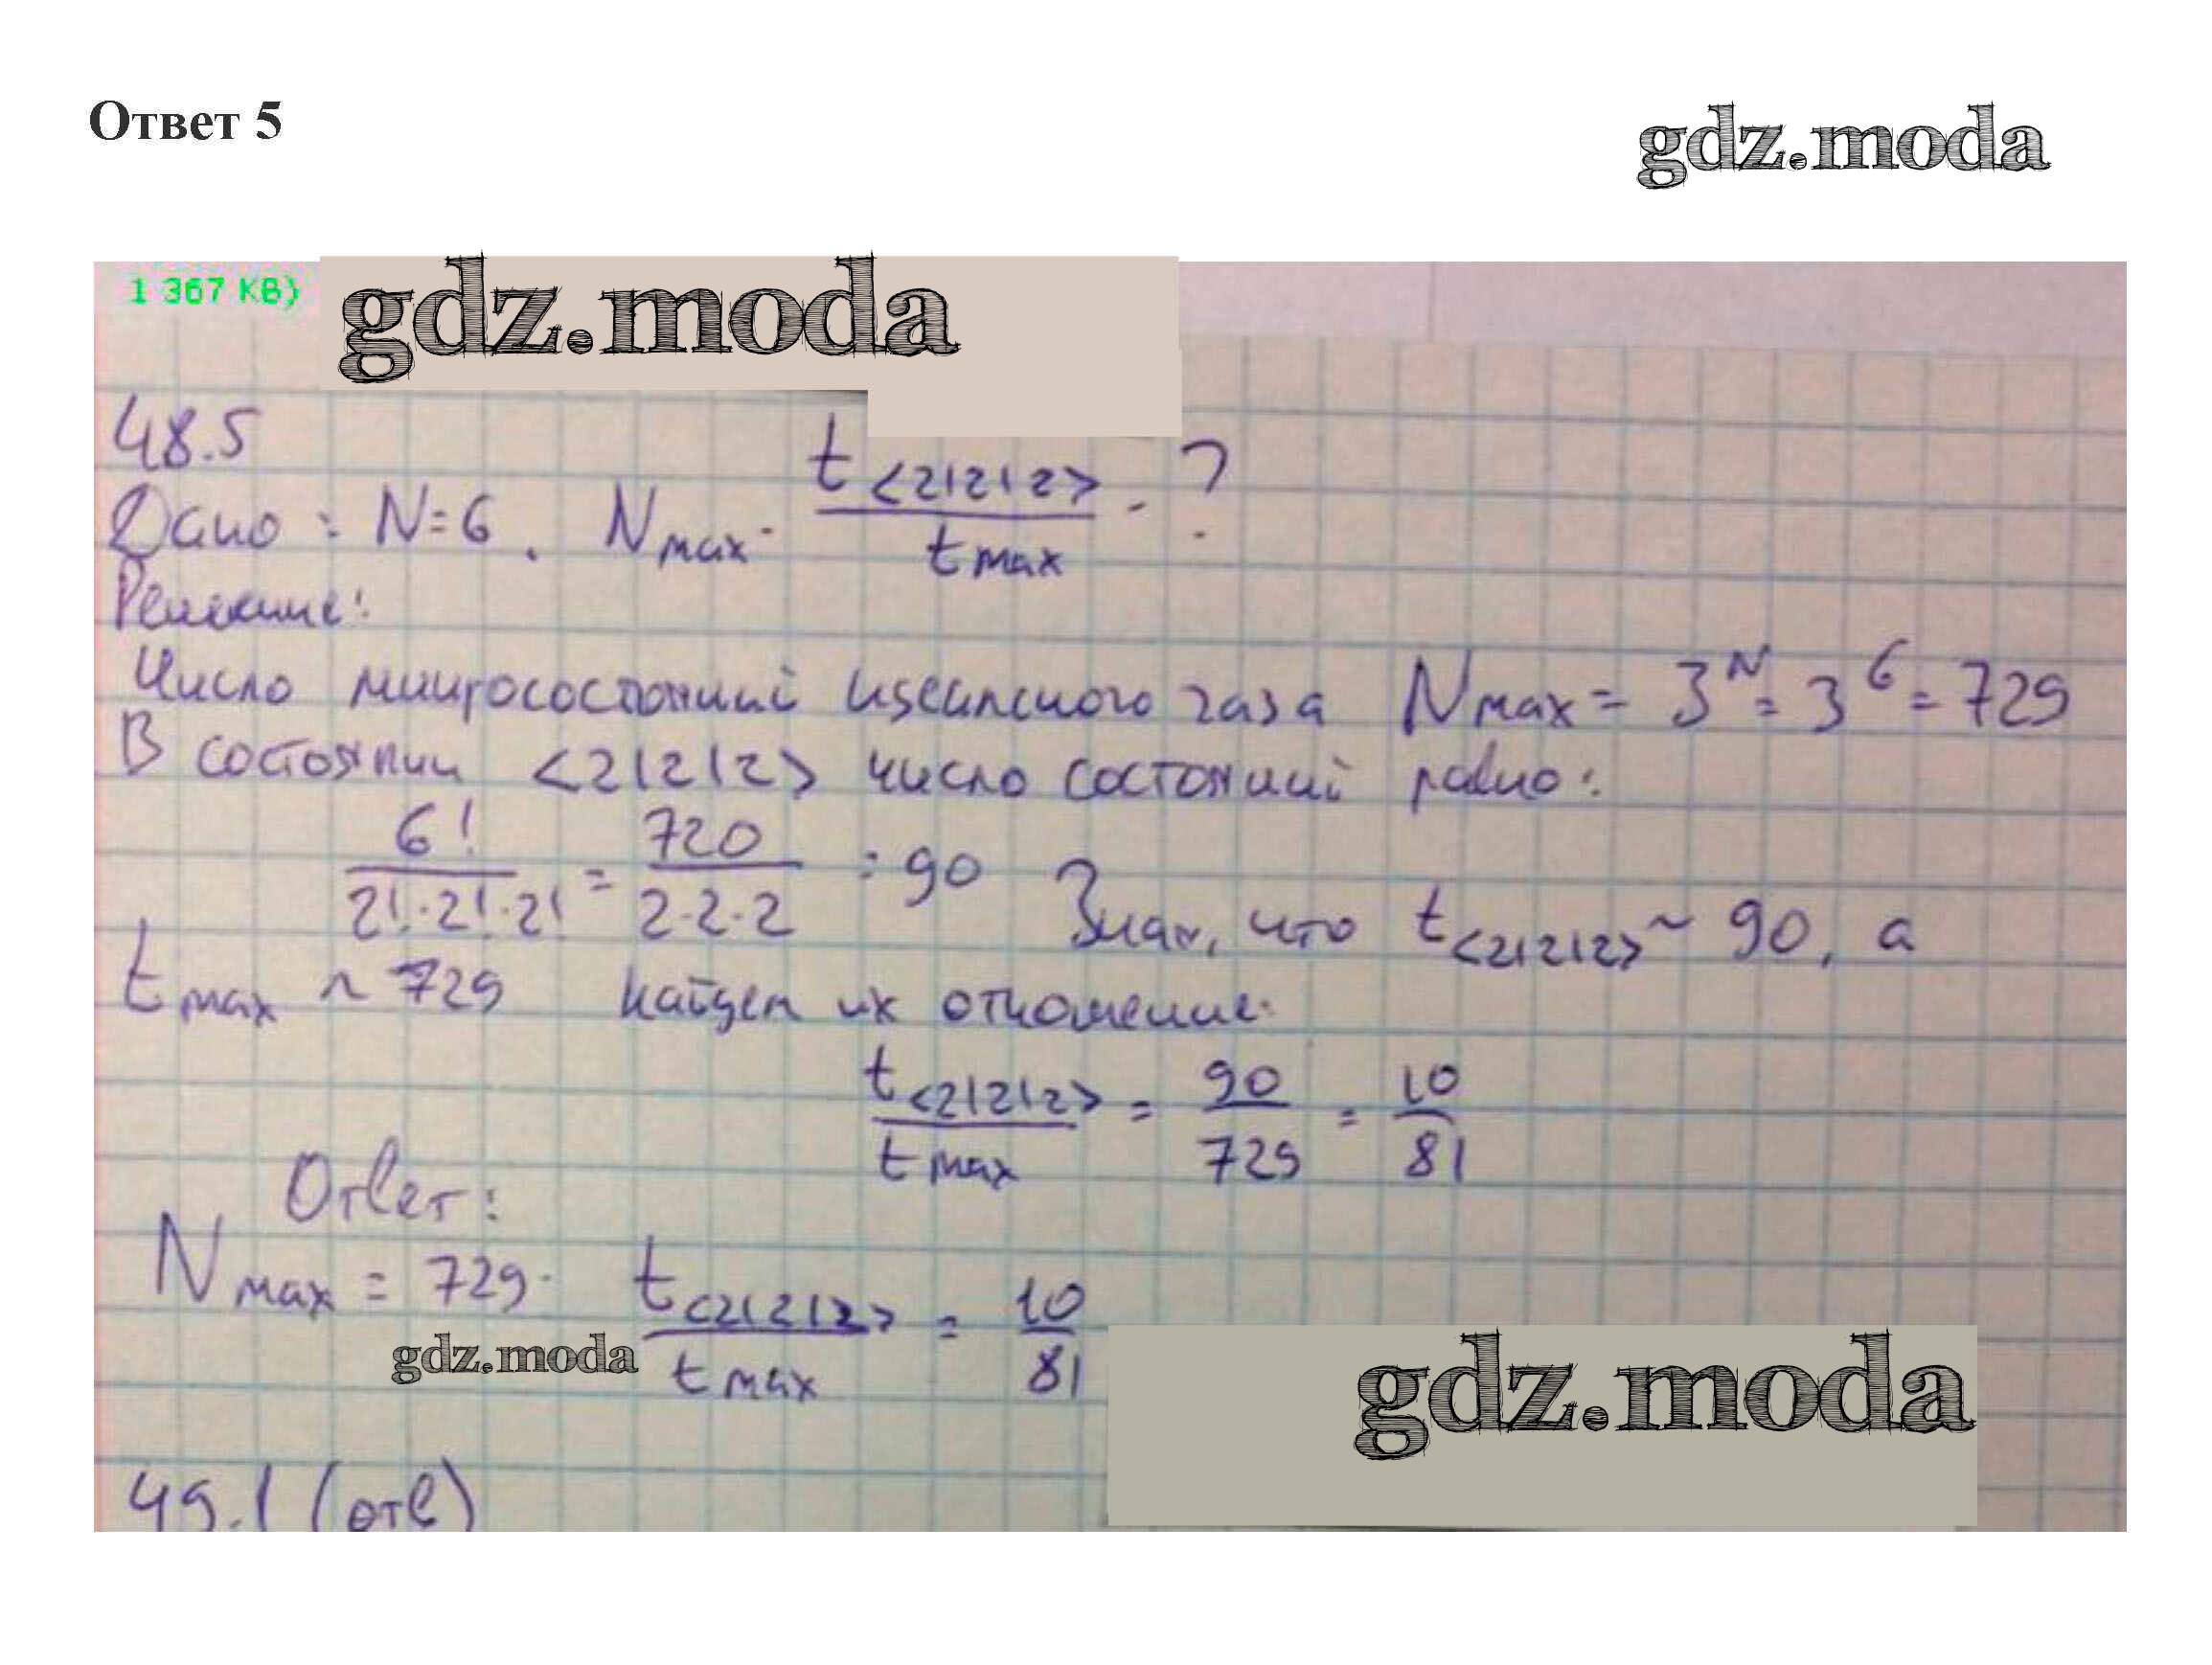 Ответ 5
gdz.moda
1 367 KB)
gdz.moda
48.5
Дано: N=6. Nmax. t<2|2|2> / tmax - ?
Решение:
Число микросостояний идеального газа Nmax = 3^N = 3^6 = 729
В состоянии <2|2|2> число состояний равно:
6! / 2!·2!·2! = 720 / 2·2·2 = 90 Зная, что t<2|2|2> ~ 90, а
tmax ~ 729 найдем их отношение:
t<2|2|2> / tmax = 90 / 729 = 10 / 81
Ответ:
Nmax = 729. t<2|2|2> / tmax = 10 / 81
gdz.moda
gdz.moda
49.1 (отв)